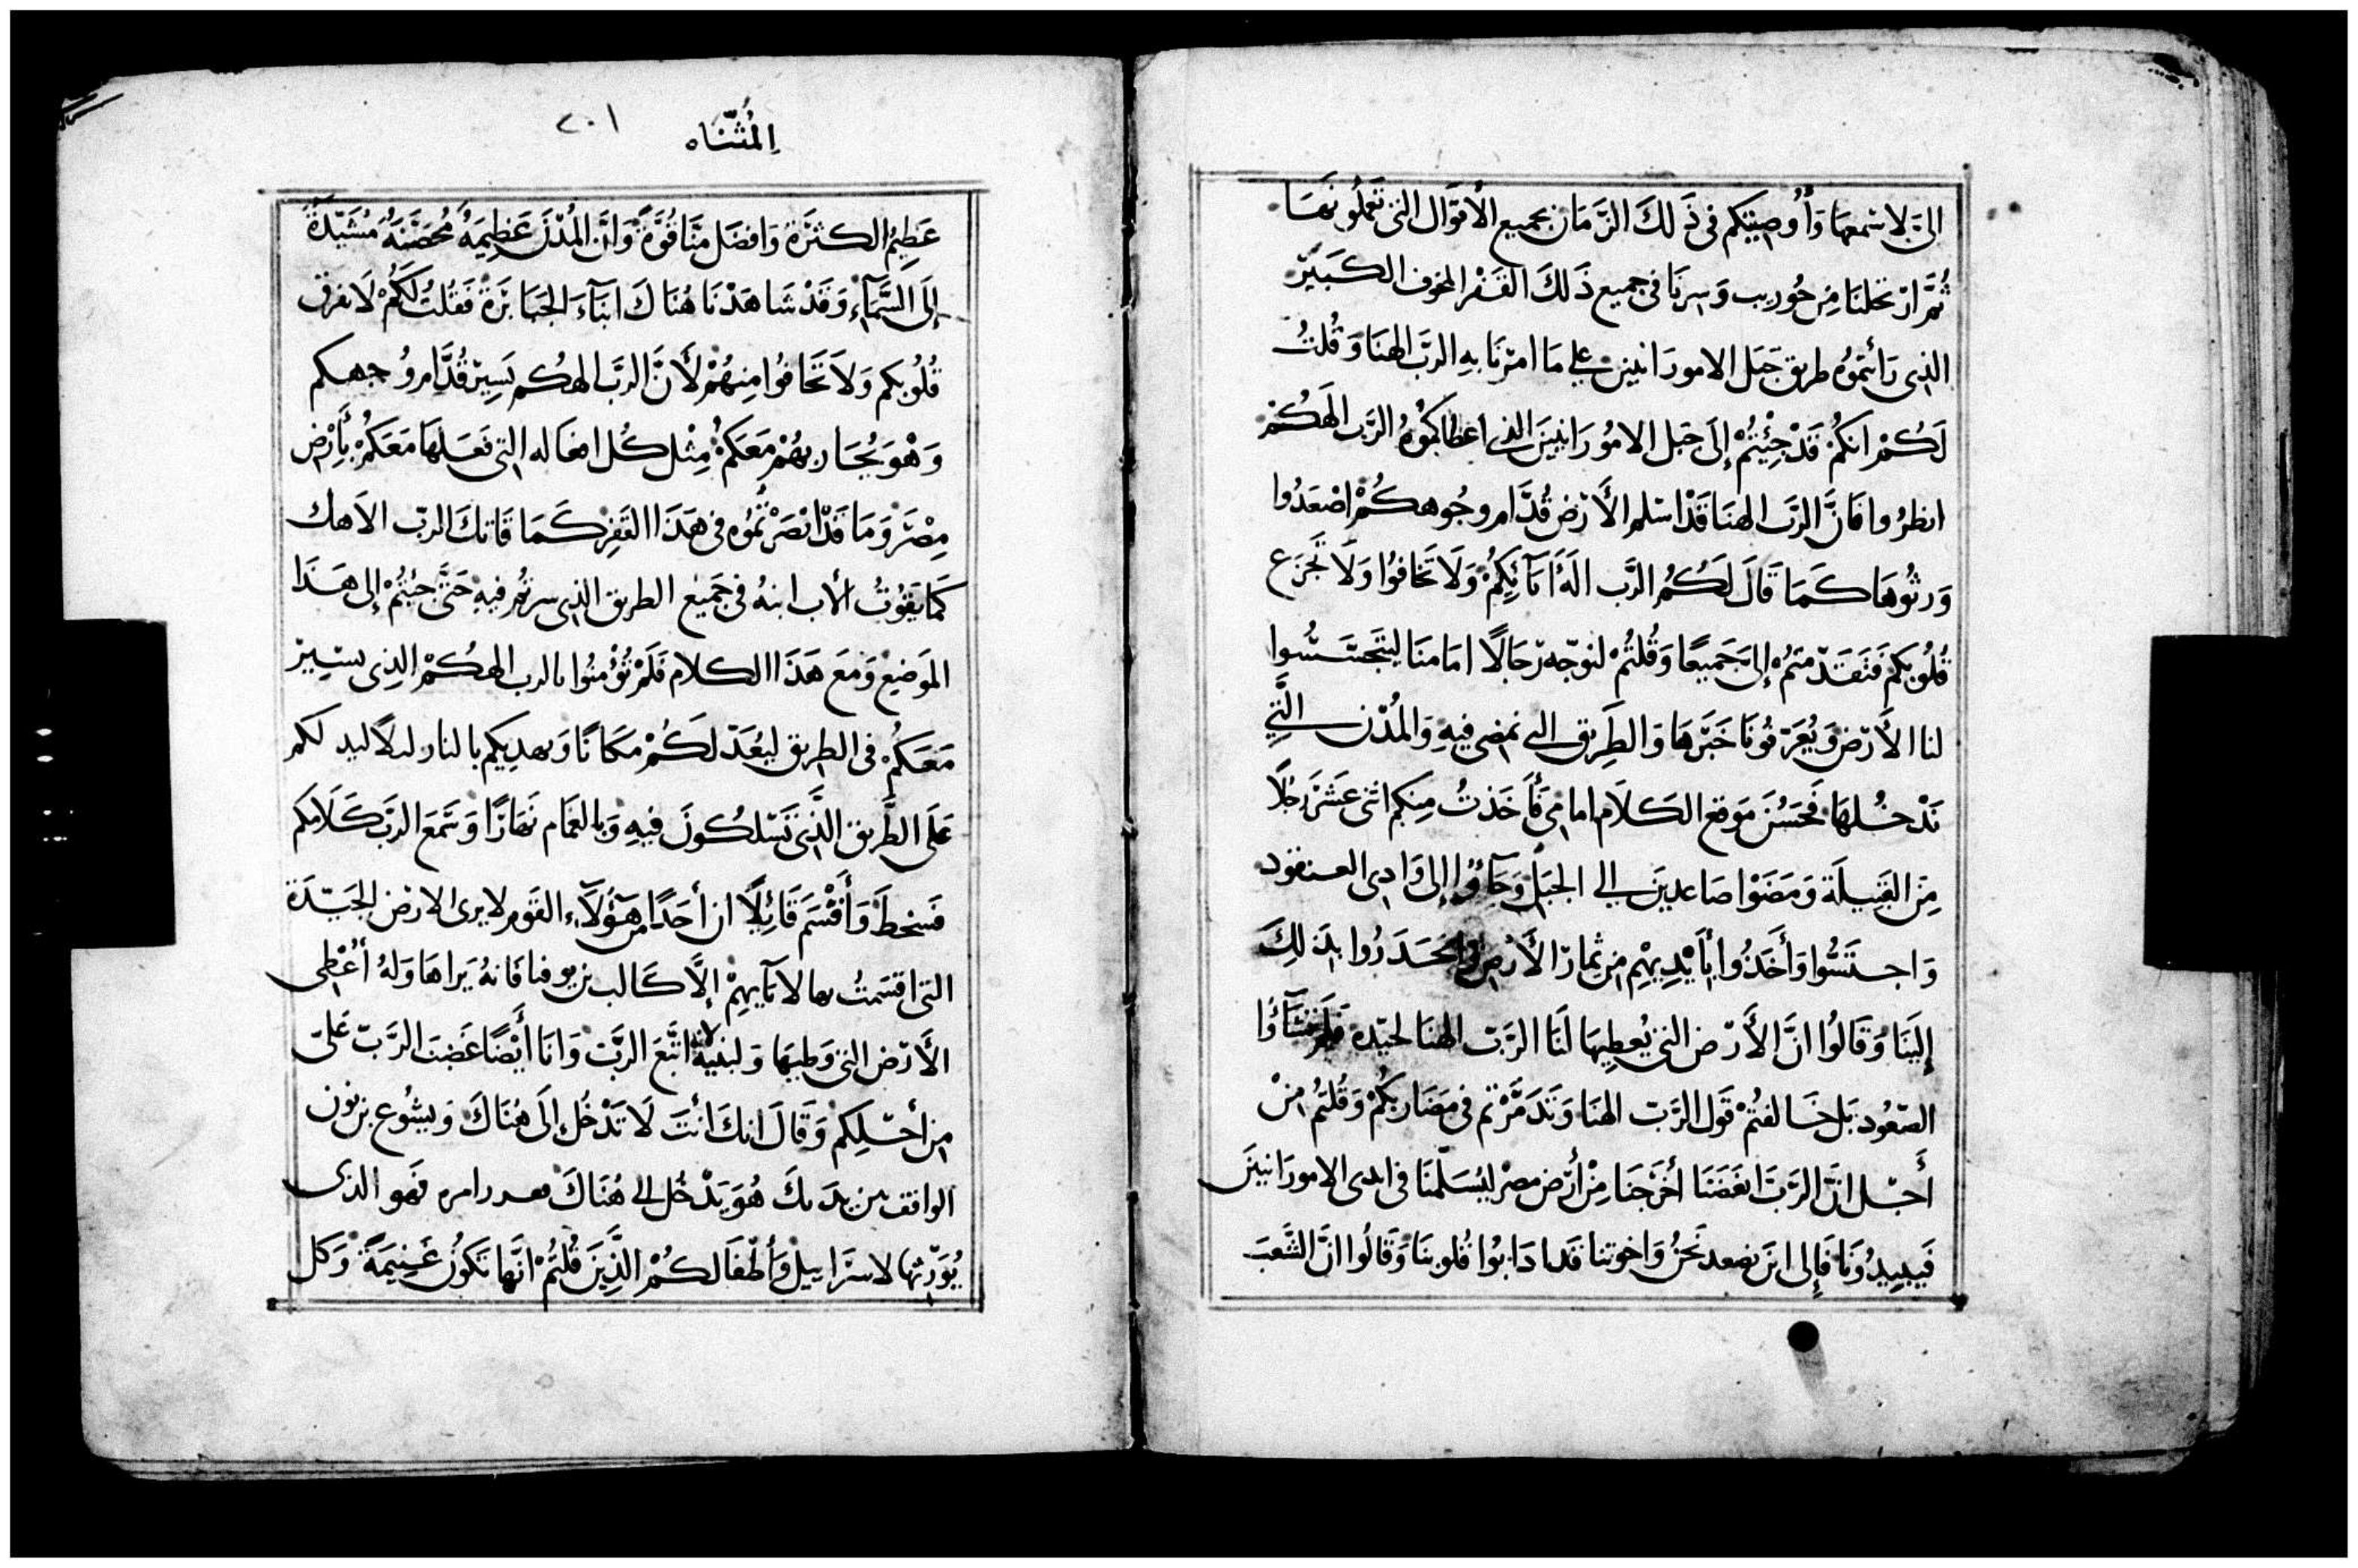 الىَّ لاسمعها وَأُوصيتكم فى ذَلكَ الزَّمَان بجميع الأقوَال التى تعَملُونهَا
ثُمَّ ارتحلنَا مِن حُوريب وَسِرنَا فى جميع ذَلكَ القَفْر المخوف الكَبيْر
الذى رَأيتموُه طريق جَبَل الامورَانيين على مَا امرَنَا بهِ الربّ الهنَا وَقُلتُ
لَكُمْ انكُمْ قَدْ جِئْتُمْ إلَى جَبَل الامُورَانيينَ الذى اعطَاكمُوهُ الرَّب الهَكُمْ
انظرُوا فَانَّ الرَّب الهنَا قَدْ اسْلم الأَرْض قُدَّام وجُوهكُمْ اصْعَدُوا
وَرثُوهَا كَمَا قَالَ لَكُمُ الرَّب الَهُ أبَآئِكُمْ وَلَا تَخَافُوا وَلَا تَجْزَع
قُلُوبكم فَتَقَدّمتمُ إلىَّ جَميعًا وَقُلتُمْ لنوَجّه رّجَالًا امَامنَا ليتَجَسَّسُوا
لنا الأَرْض وَيُعَرّفُونَا خَبَرهَا وَالطَرِيق التى نمضى فيهِ وَالمُدْن التَّى
نَدْخُلهَا فحَسُنَ مَوقع الكَلَام امَامى فَأَخَذتُ مِنكم اثنى عَشَر رَجُلًا
مِنَ القَبيلَة وَمَضَوْا صَاعدِينَ الى الجبَل وَجَآؤُا إلى وَادِى العنقود
وَاجتَسُّوا وَأَخَذُوا بأَيْدِيهِم مِن ثمارّ الأَرْض وانحَدَرُوا بذَلِكَ
إلينَا وَقَالُوا انَّ الأَرْض التى يُعطِيهَا لَنَا الرَّبّ الهنَا لجيّده فلم تشَآؤُا
الصّعُود بَل خَالفتُمْ قَول الرَّبّ الهنَا وَتَذَمَّرْتم فى مَضَاربكُمْ وَقُلتُم مِنْ
أَجْل انَّ الرَّبَّ ابغَضَنَا أخرَجنَا مِنْ أرّض مصْر ليُسَلّمنَا فى ايدى الامورَانيينَ
فَيبيدُونَا فَإلى اين نصعد نَحنُ وَاخوتنا قد اذَابُوا قُلوبنَا وَقَالُوا انَّ الشَّعبَ
اِلمُثنّاه
٢٠١
عَظِيمُ الكثرَة وَافضَل منَّا قُوَّة وَانَّ المُدْن عَظِيمَهُ مُحَصَّنَهُ مُشَيّدَةُ
إلَى السَّمَآءِ وَقَدْ شَاهَدْنَا هُنَاكَ ابنَآءَ الجَبَابرَة فَقُلتُ لَكُمْ لَا تفرق
قُلُوبكم وَلَا تَخَافُوا مِنهُمْ لأَنَّ الرَّبَّ الهكُم يَسِيْر قُدَّام وُجهكم
وَهْوَ يُحَاربهُمْ مَعَكمُ مِثْل كُل افعَاله التى فَعَلهَا مَعَكُمْ بأَرْض
مِصْر وَمَا قَدْ ابْصَرْتُمُوُه فى هَذَا القَفِر كَمَا قَاتكَ الربّ الاهك
كَما يَقُوْتُ الأب ابنهُ فى جَميْع الطريق الذى سرتُم فيهِ حَتَّى جئتُمْ إلى هَذَا
المَوضِع وَمَعَ هَذَا الكلام فَلَمْ تُؤْمنُوا بالرب الهكُمْ الذِى يسِيرْ
مَعَكُمْ فى الطِريق ليُعَدّ لَكُمْ مَكَانًا وَيهدِيكم بالنار ليلًا ليد لكم
عَلَى الطَّريق الَّذِى تَسْلكُونَ فيهِ وَبالغَمَام نَهَارًا وَسَمعَ الربّ كَلَامكم
فَسَخطَ وَأَقْسَمَ قَائِلًا ان أَحَدًا مِن هَؤُلَآءِ القَوم لا يرى الارض الجَيّدَة
التى اقسَمتُ بها لابَآيهِمْ إلَّا كَالب بن يوفنا فَانهُ يَراهَا وَلهُ أُعْطِى
الأَرْض التى وَطيهَا وَلبنيه لانه اتَّبَعَ الرَّبّ وَانَا أَيْضًا غَضِبَ الرَّبّ عَلىّ
مِن أجْلِكم وَقَالَ انكَ أنْتَ لَا تَدْخُل إلَى هُنَاكَ وَيشُوع بن نون
الواقف بين يديكَ هُوَ يَدْخُل الى هُنَاكَ فهو الذى
يُوَرّثها لاسرَاييل وَأطْفَالكُمْ الَّذِينَ قُلتُمْ انَّها تكونُ غَنِيمَةً وَكل